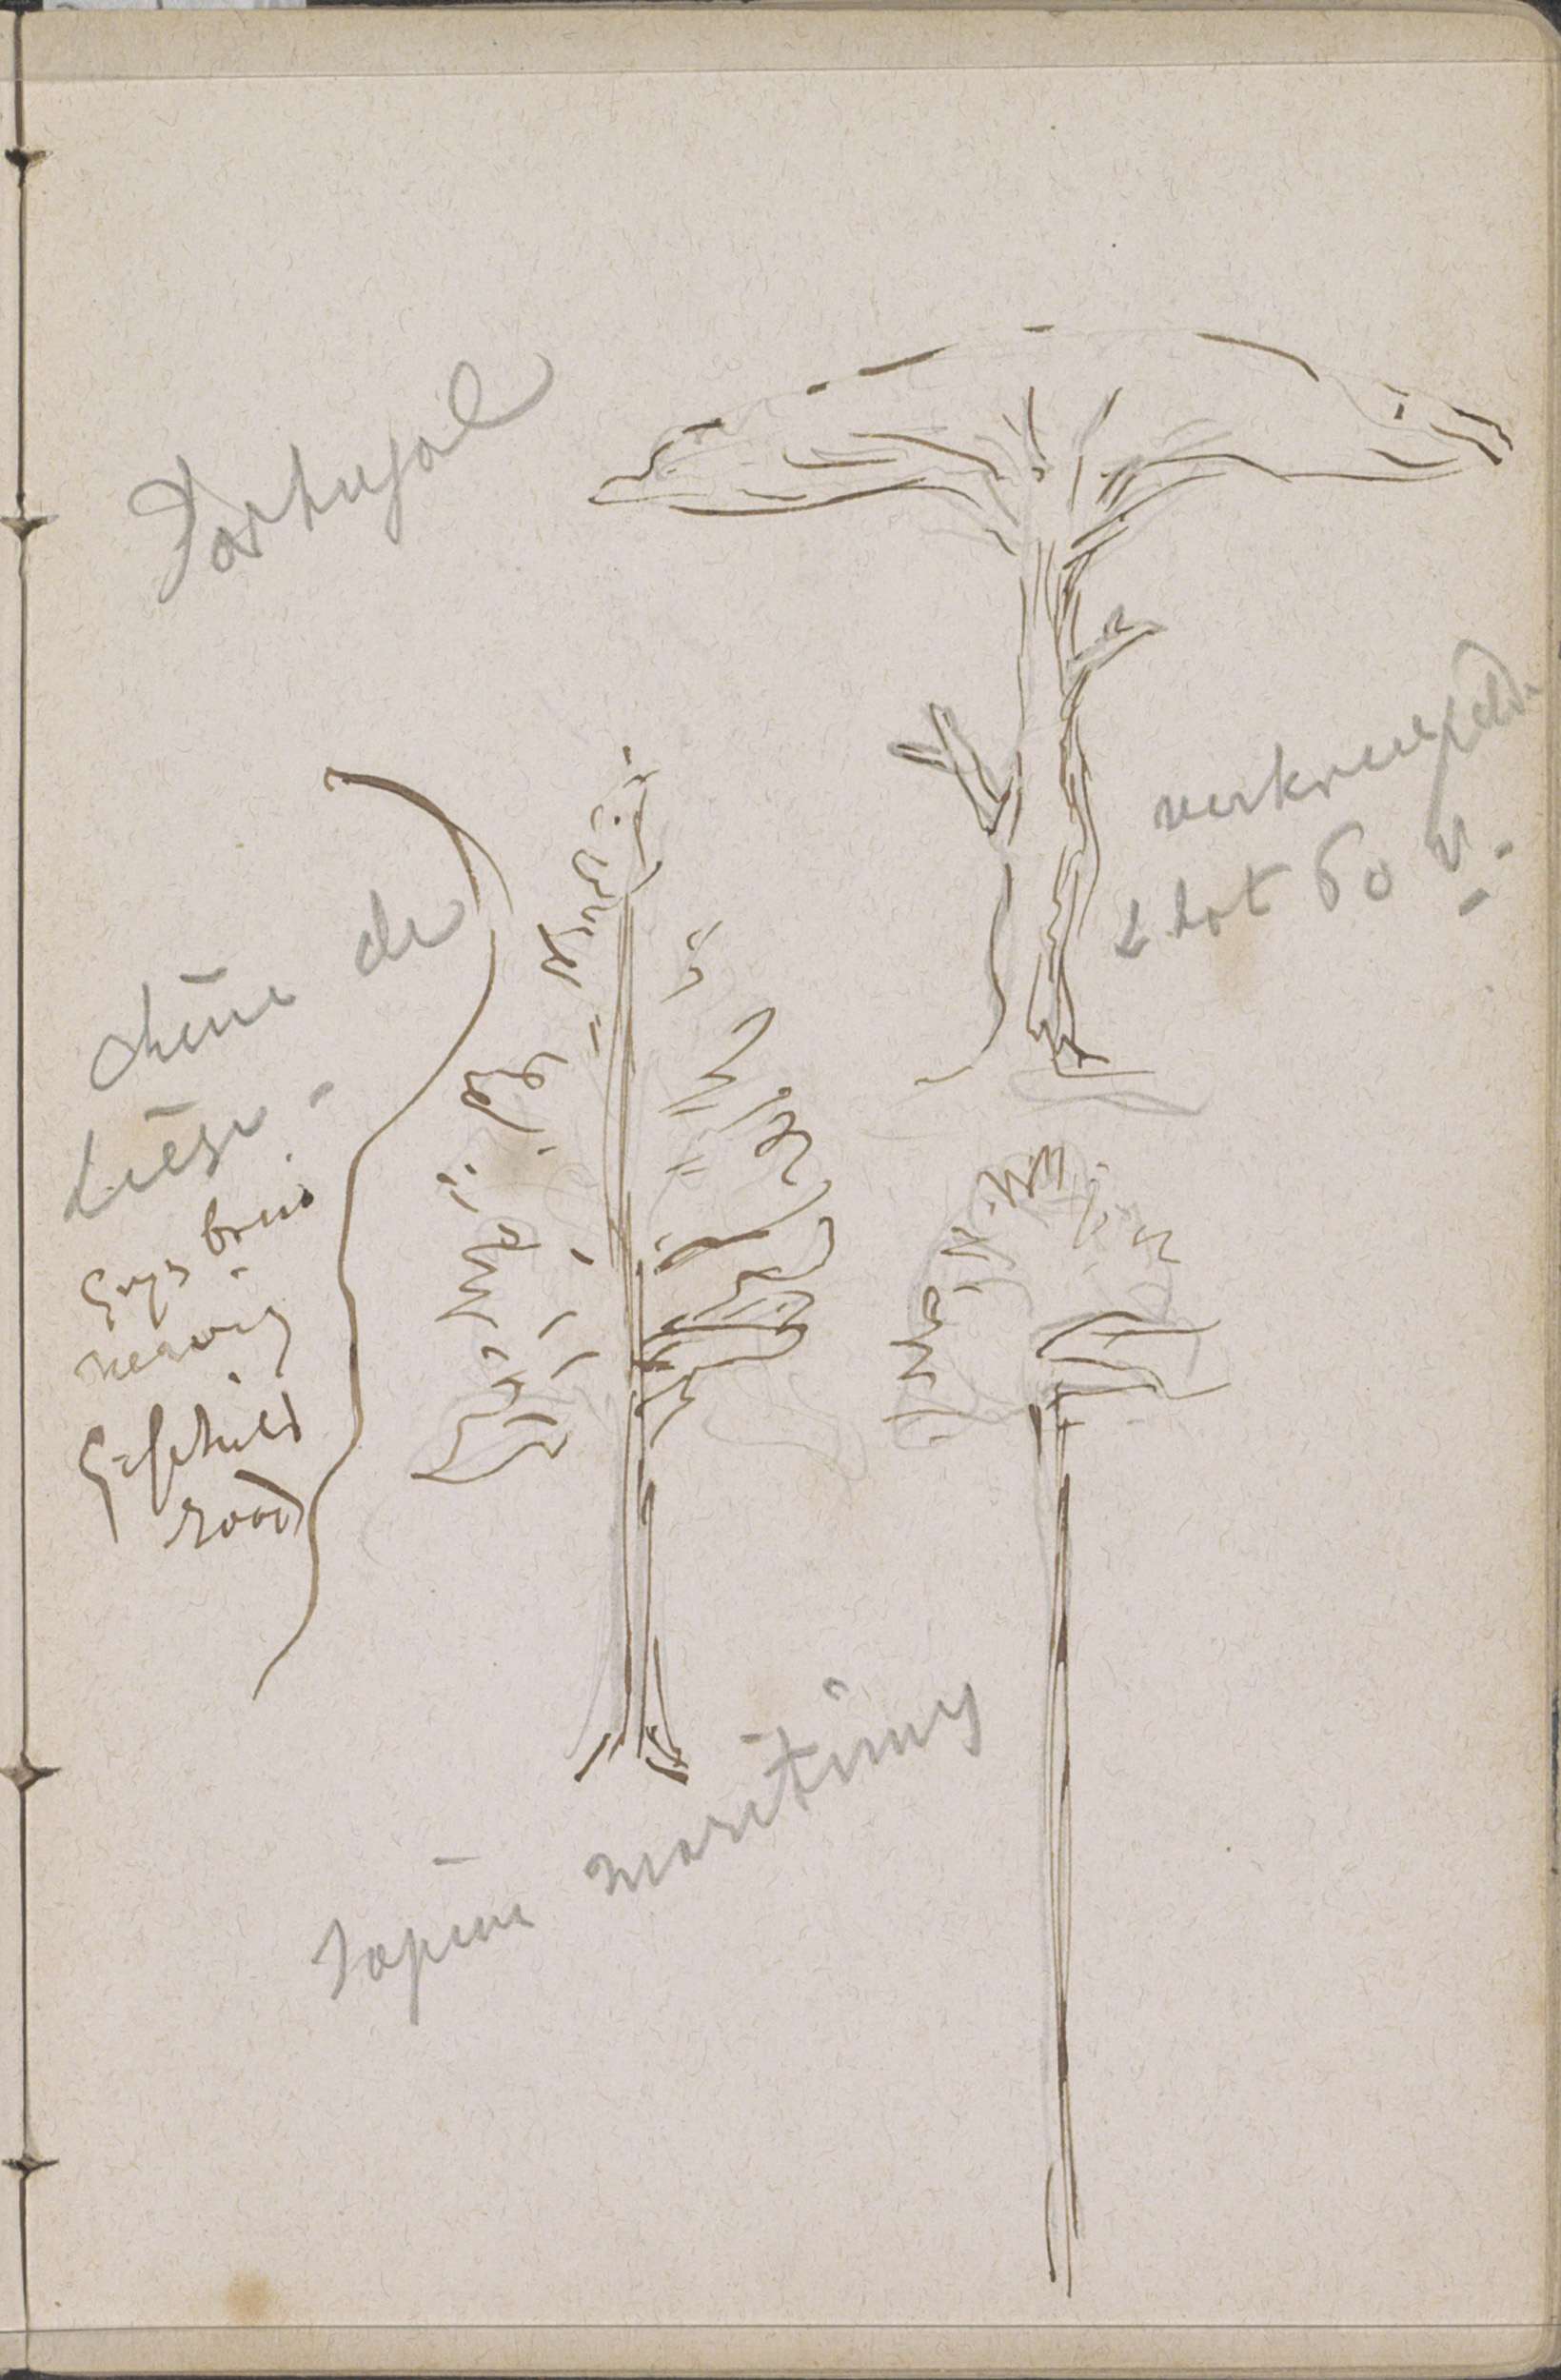 Portugal
verkreukelde
tot 60 v.
chêne de
Liège -
grijs bruin
geschild
rood
Sapin maritimes